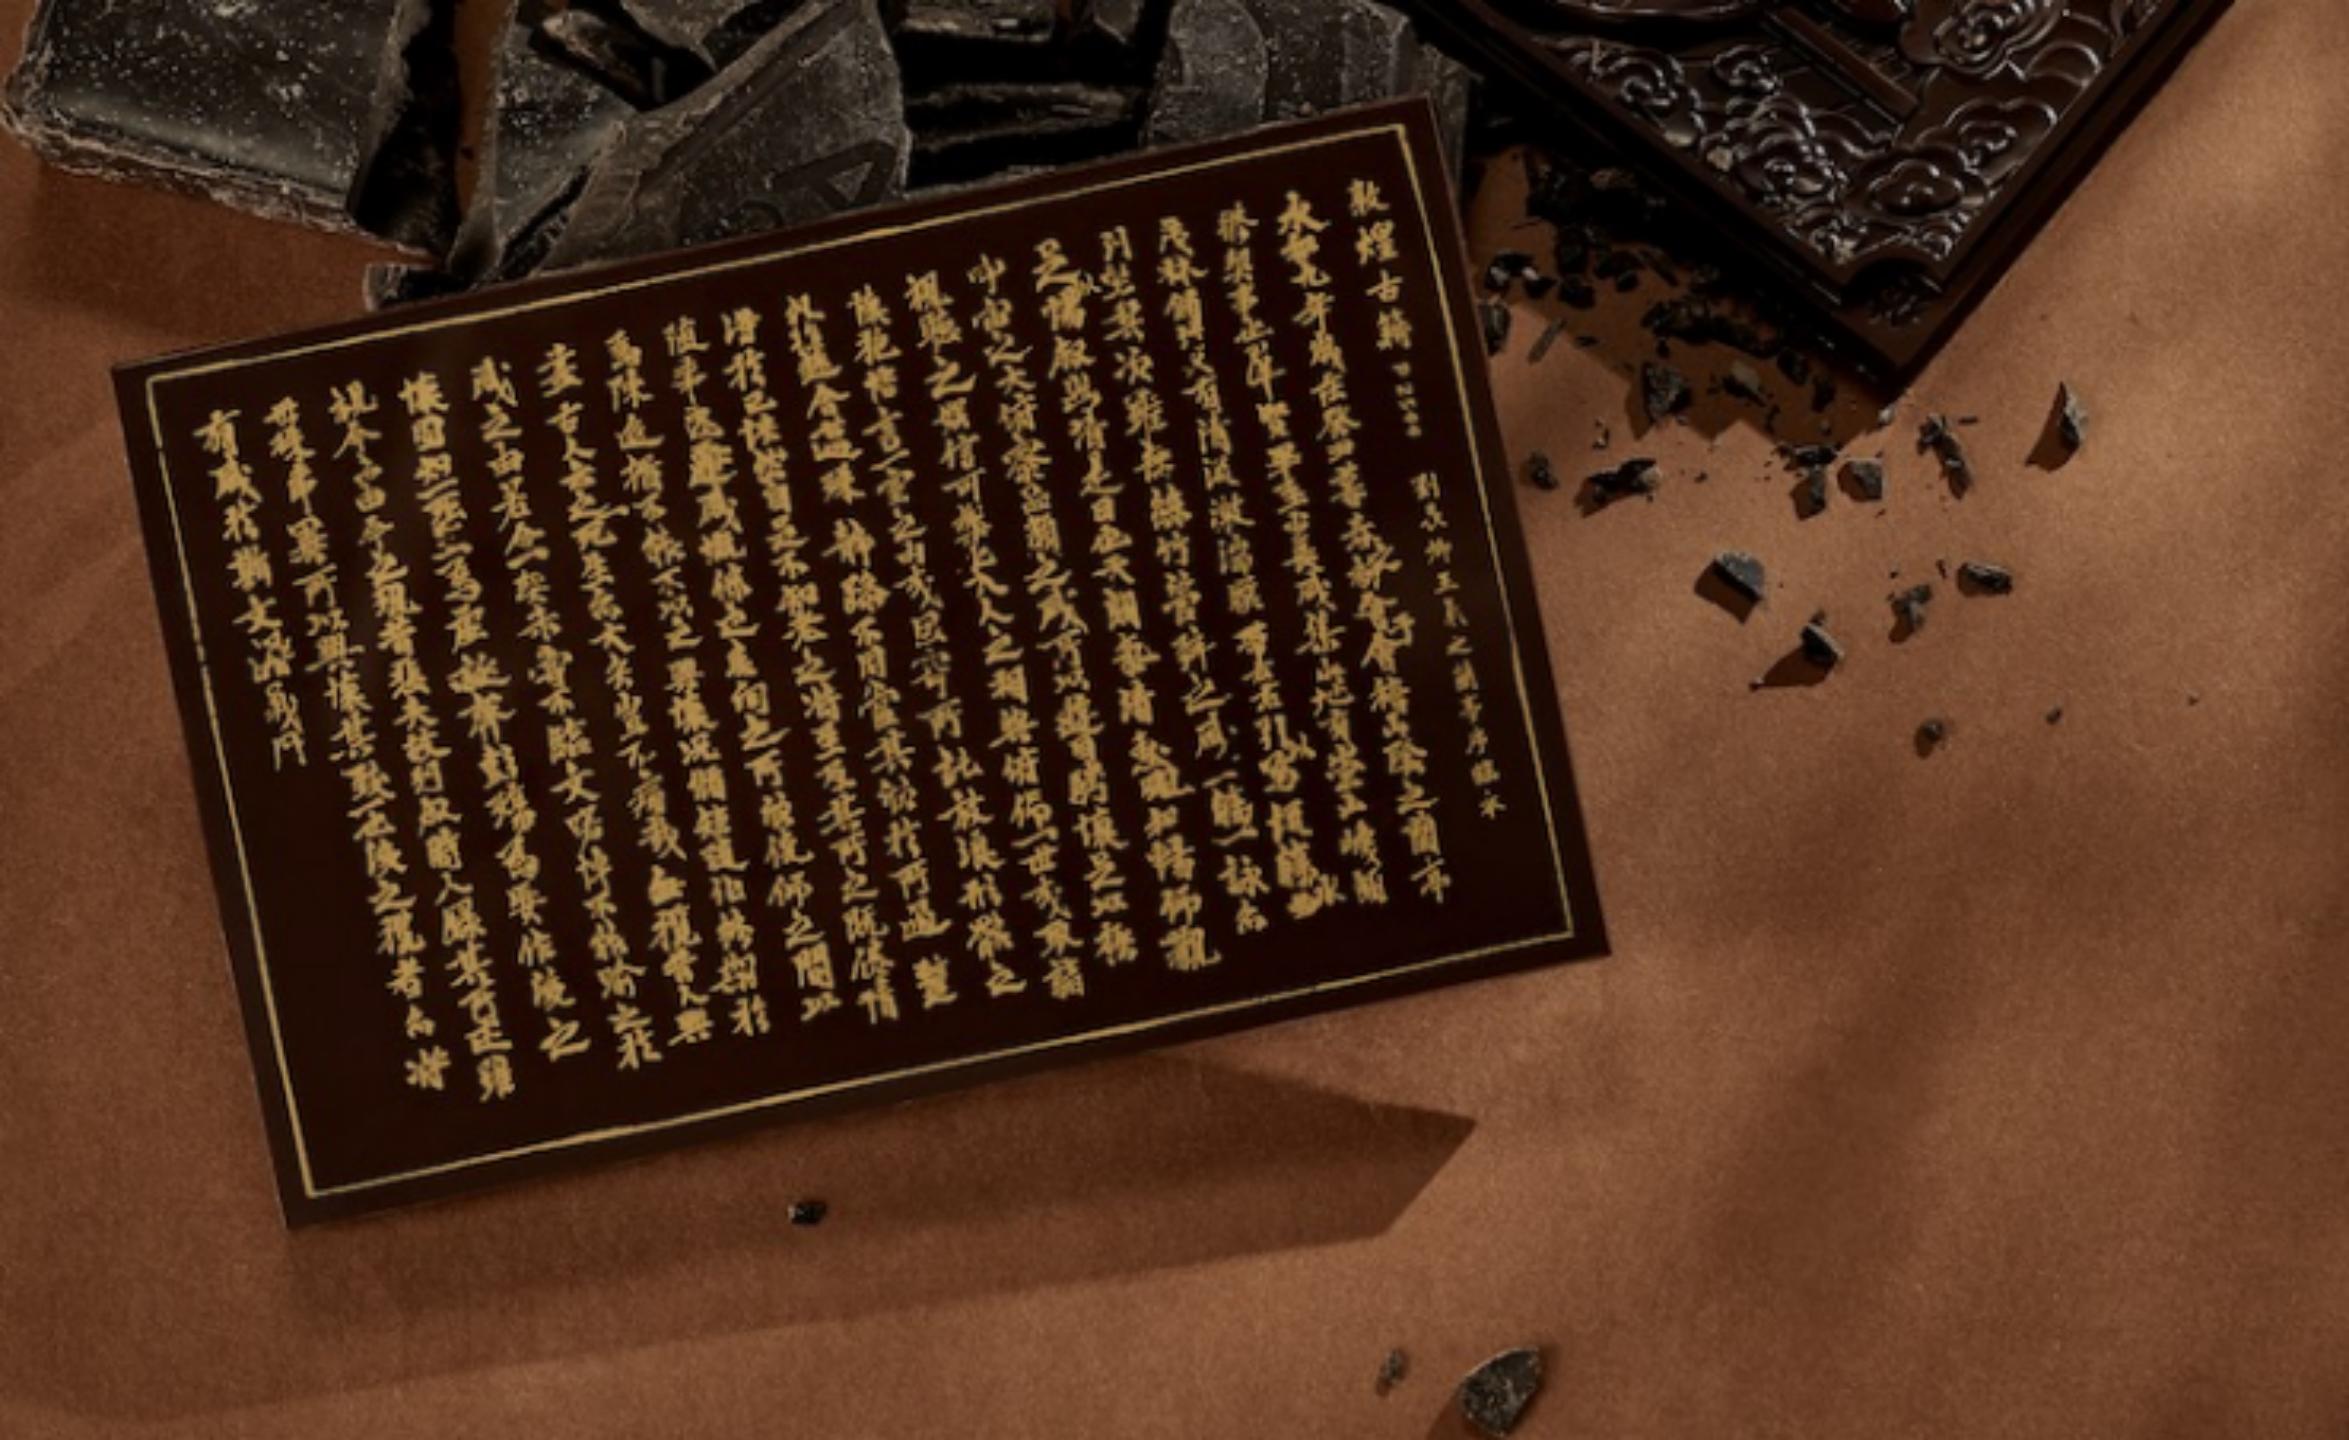 敦煌古籍
永和九年歲在癸丑暮春之初會于會稽山陰之蘭亭
脩稧事也群賢畢至少長咸集此地有崇山峻領
茂林脩竹又有清流激湍暎帶左右引以為流觴曲水
列坐其次雖無絲竹管弦之盛一觴一詠亦
足以暢敘幽情是日也天朗氣清惠風和暢仰觀
宇宙之大俯察品類之盛所以遊目騁懷足以極
視聽之娛信可樂也夫人之相與俯仰一世或取諸
懷抱悟言一室之內或因寄所託放浪形骸之
外雖趣舍萬殊靜躁不同當其欣於所遇暫
得於己快然自足不知老之將至及其所之既倦情
隨事遷感慨係之矣向之所欣俛仰之間以
為陳迹猶不能不以之興懷況脩短隨化終期於
盡古人云死生亦大矣豈不痛哉每攬昔人興
感之由若合一契未嘗不臨文嗟悼不能喻之於
懷固知一死生為虛誕齊彭殤為妄作後之
視今亦由今之視昔悲夫故列敘時人錄其所述雖
世殊事異所以興懷其致一也後之攬者亦將
有感於斯文